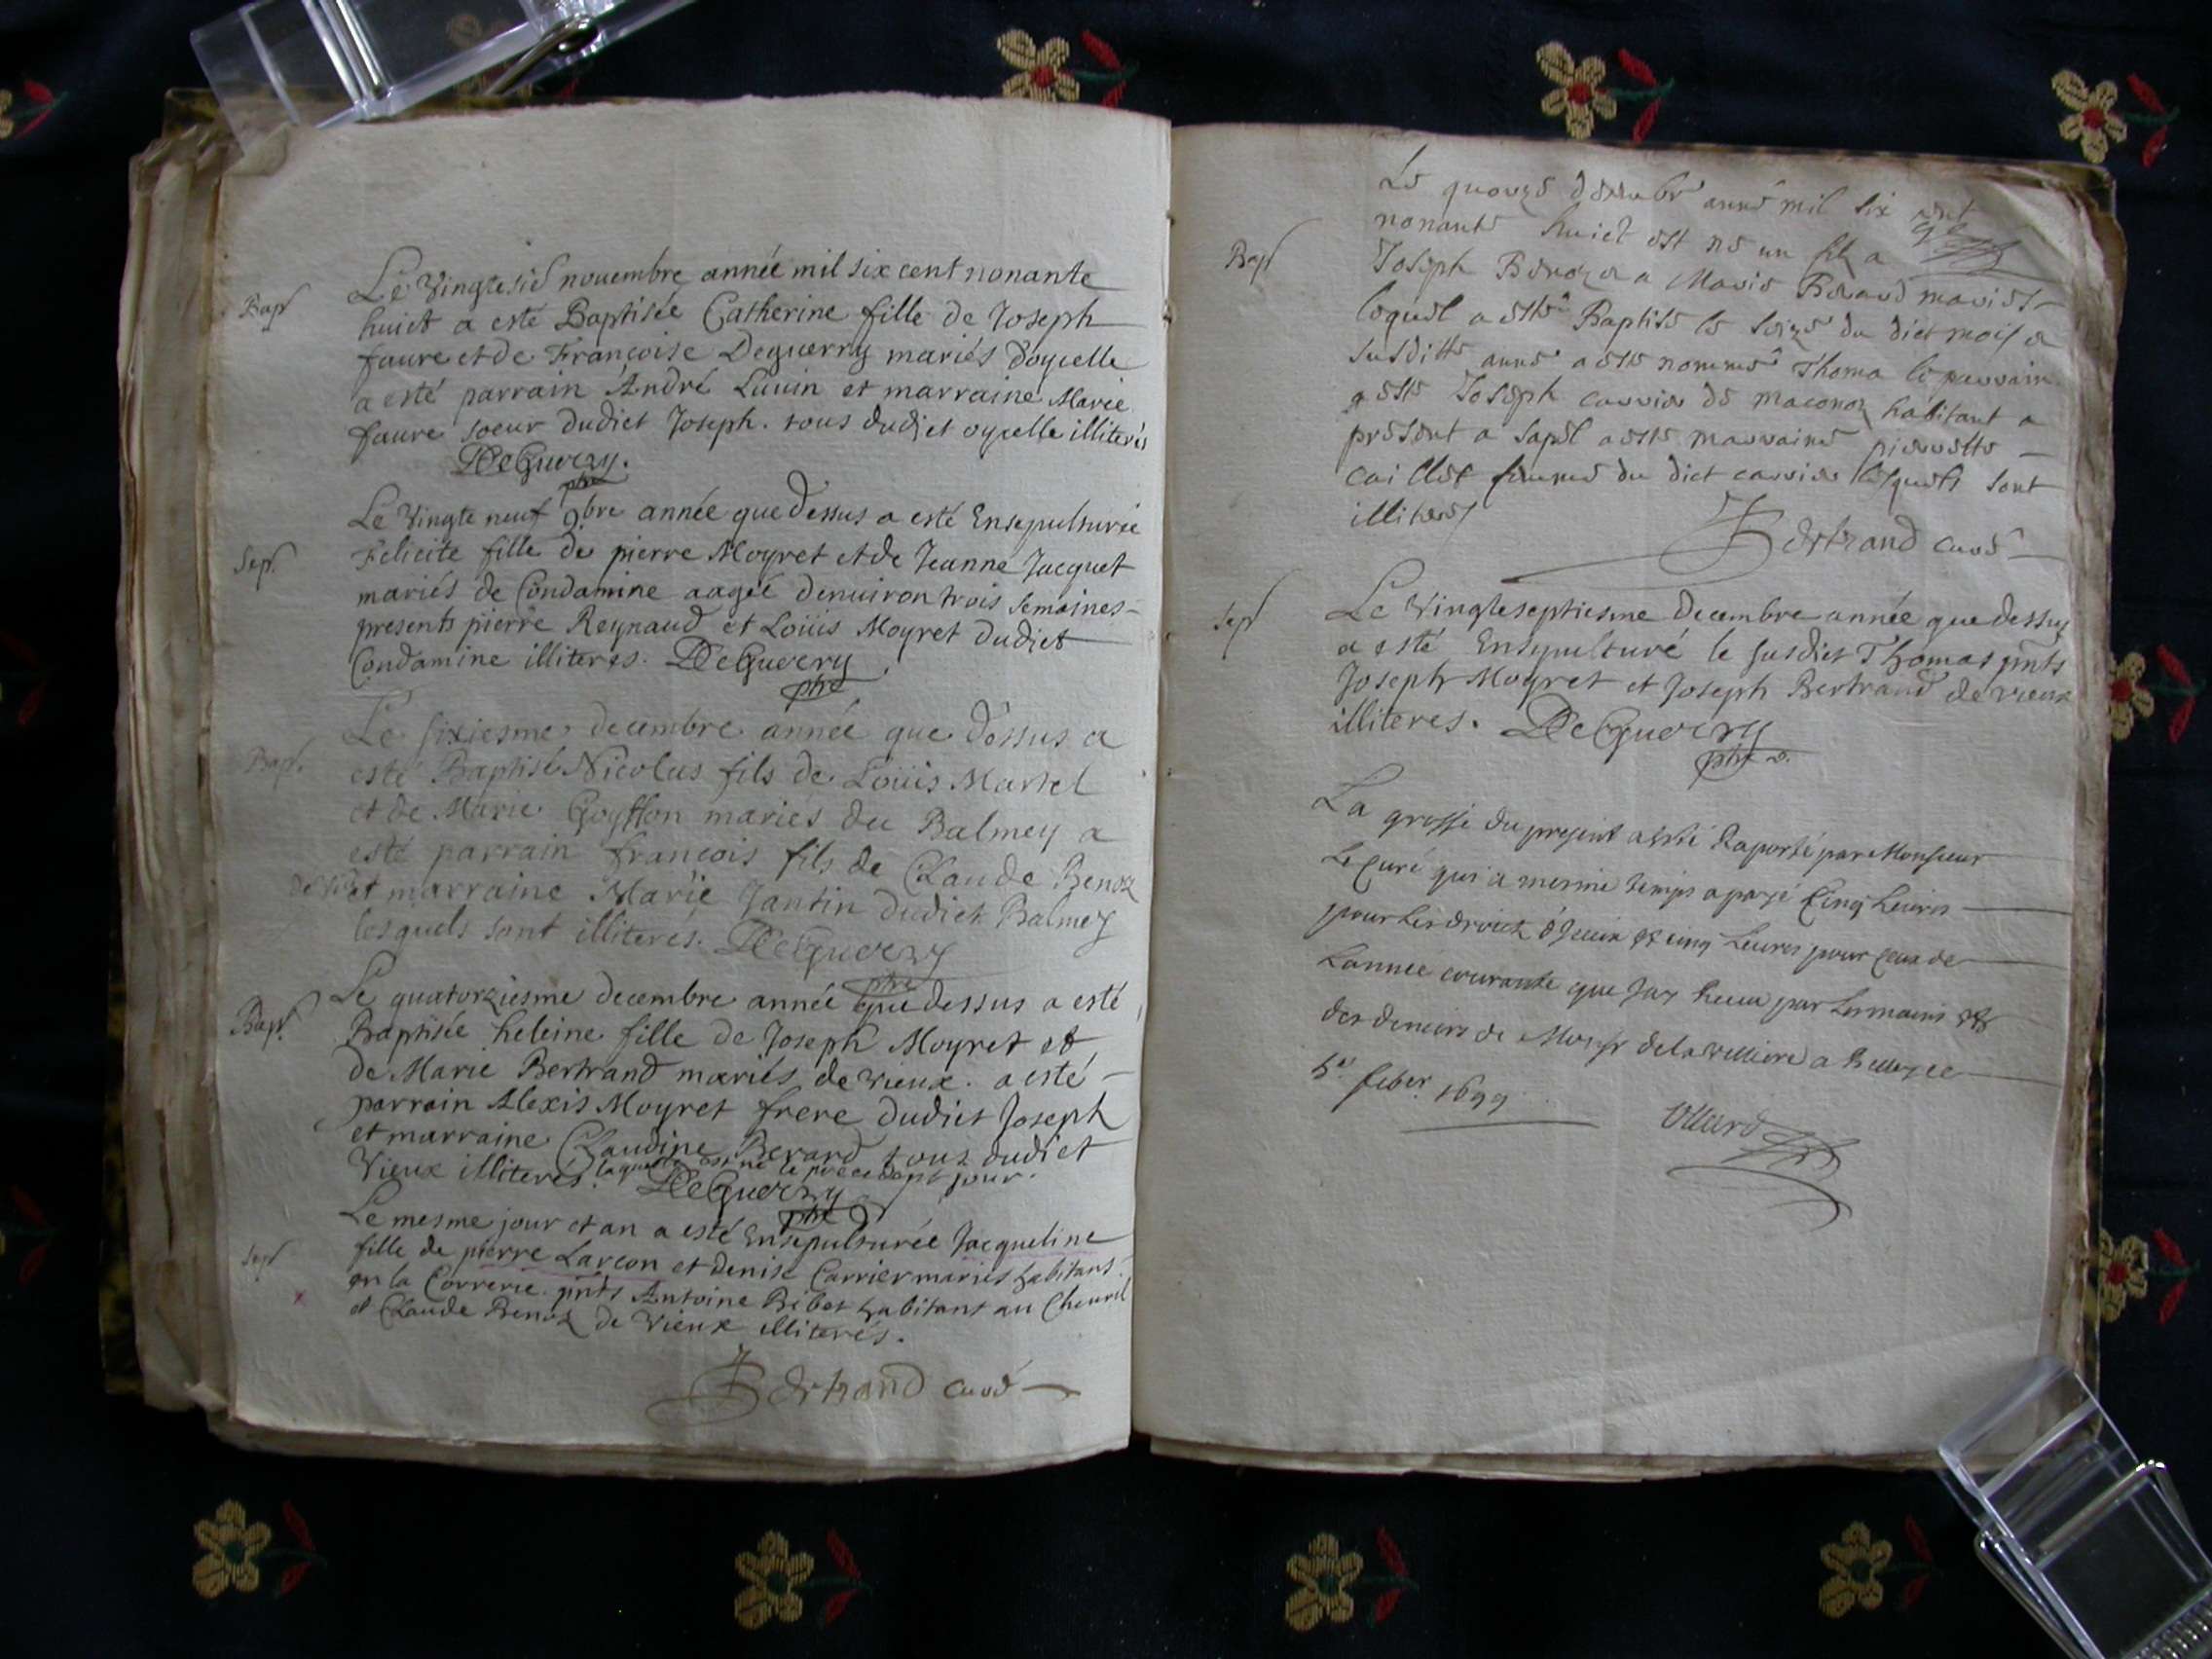 Bap.t
Le Vingtesie novembre année mil six cent nonante
huict a esté Baptisée Catherine fille de Joseph
faure et de Françoise Deguerry mariés d'oyelle
a esté parrain André Luvin et marraine Marie
faure soeur dudict Joseph. tous dudict oyelle illiterés
DeGuerry.
ptre
Sep.
Le Vingte neuf 9bre année que Dessus a esté Ensepulturée
Felicite fille de pierre Moyret et de Jeanne Jacquet
mariés de Condamine aagée denuiron trois semaines
presents pierre Reynaud et Loüis Moyret dudict
Condamine illiteres. DeGuerry
ptre
Bap.
Le sixiesme decembre année que dessus a
esté Baptisé Nicolas fils de Loüis Martel
et de Marie Goyffon mariés du Balmey a
esté parrain françois fils de Claude Benoz
et marraine Marie Jantin dudict Balmey
lesquels sont illiteres. DeGuerry
ptre
Bap.t
Le quatorziesme decembre année que dessus a esté
Baptisée heleine fille de Joseph Moyret et
de Marie Bertrand mariés de vieux. a esté
parrain Alexis Moyret frere dudict Joseph
et marraine Claudine Berard tous dudict
Vieux illiterés. laquelle est né le precedent jour.
DeGuerry
ptre
Sep.t
Le mesme jour et an a esté Ensepulturée Jacqueline
fille de pierre Larcon et denise Carrier mariés habitans
en la Correrie. pnts Antoine Bibet habitant au Cheuril
et Claude Benoz de vieux illiterés.
Bertrand curé
Bap.t
Le quatorze decembre année mil six cent
nonante huict est né un fils a
Joseph Benoz et a Marie Berard mariés
lequel a esté Baptisé le seize du dict mois et
susditte année a esté nommé Thoma le parrain
a esté Joseph carrier de maconoz habitant a
present a Sapel a esté marraine pierrette
caillet femme du dict carrier lesquels sont
illiterés
Bertrand curé
Sep.t
Le Vingteseptiesme decembre année que dessus
a esté Ensepulturé le susdict Thomas pnts
Joseph Moyret et Joseph Bertrand de vieux
illiteres. DeGuerry
ptre
La grosse du present a esté Raporté par Monsieur
Le Curé qui a mesme temps a payé Cinq Liures
pour les droictz et cinq Liures pour ceux de
Lannee courante que Jay heu par les mains et
des deniers de Monsr a Belley ce
5e feber. 1699